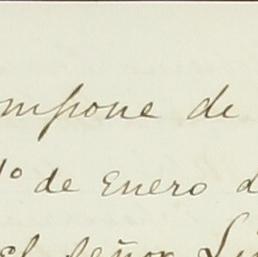 mpone de
1º de Enero d
El señor Li